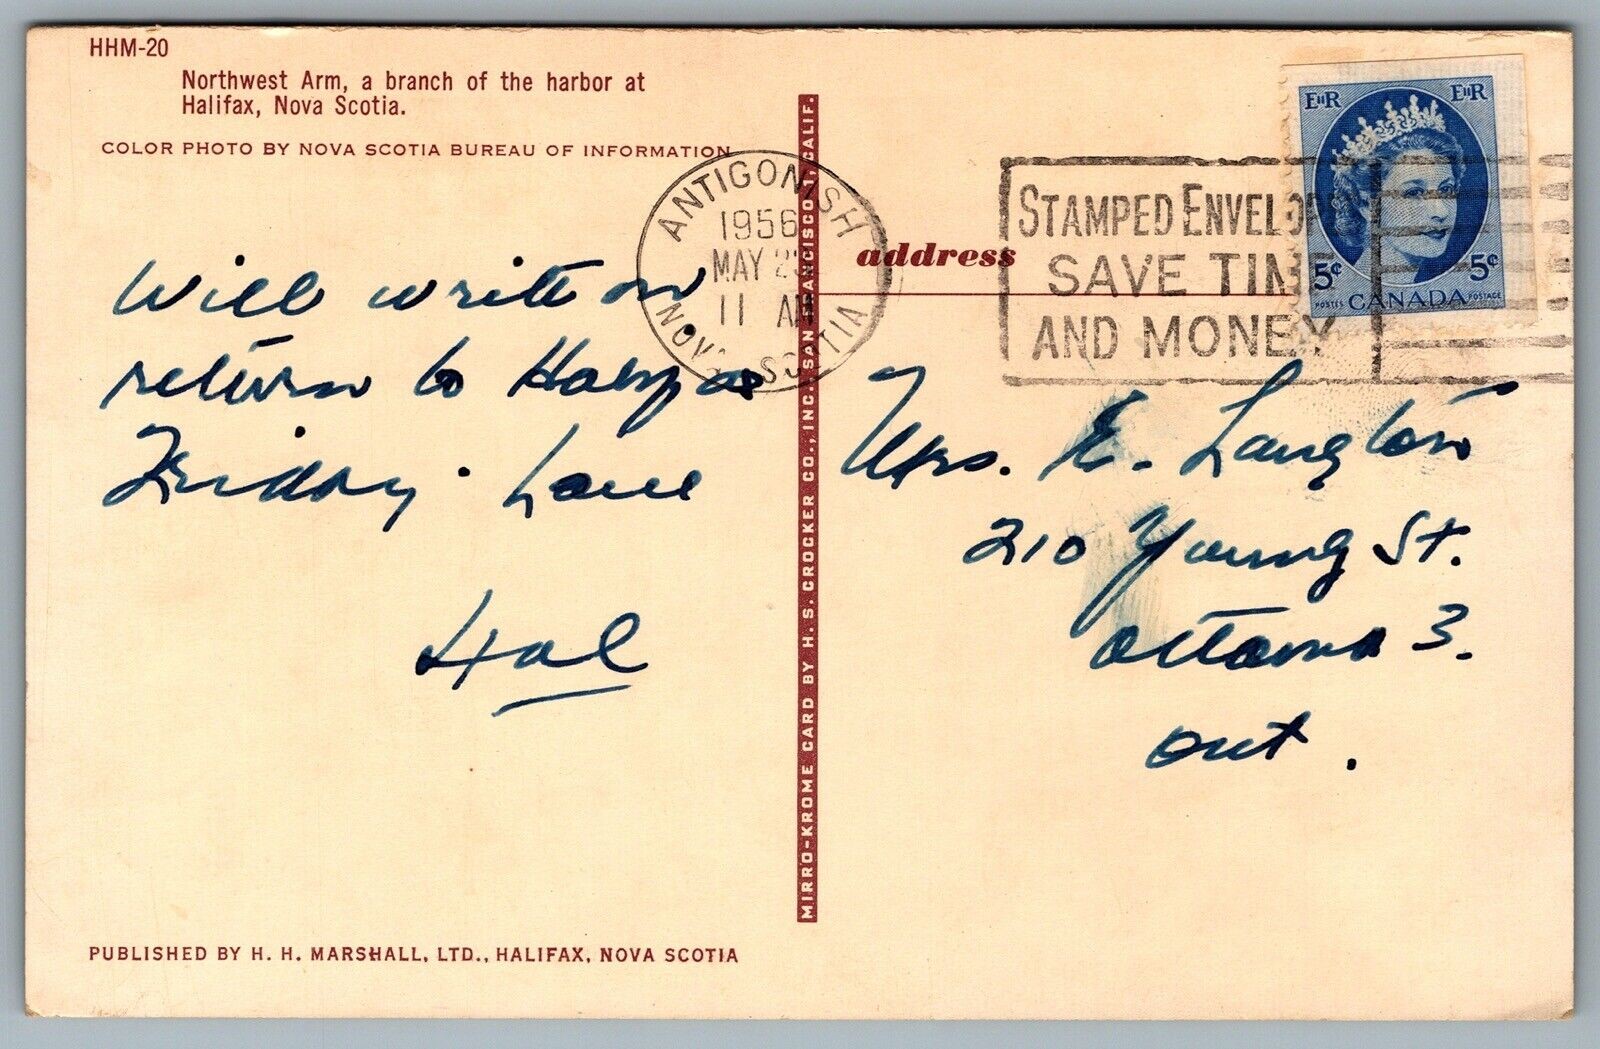 HHM-20
Northwest Arm, a branch of the harbor at
Halifax, Nova Scotia.
COLOR PHOTO BY NOVA SCOTIA BUREAU OF INFORMATION
Will write on
return to Halifax
Friday. Love
Hal
PUBLISHED BY H. H. MARSHALL, LTD., HALIFAX, NOVA SCOTIA
MIRRO-KROME CARD BY H. S. CROCKER CO., INC. SAN FRANCISCO, CALIF.
ANTIGONISH
1956
MAY
11 AM
NOVA SCOTIA
address
STAMPED ENVELOP
SAVE TIME
AND MONEY
EIIR EIIR
5¢ 5¢
POSTES CANADA POSTAGE
Mrs. E. Langton
210 Young St.
Ottawa 3.
Ont.